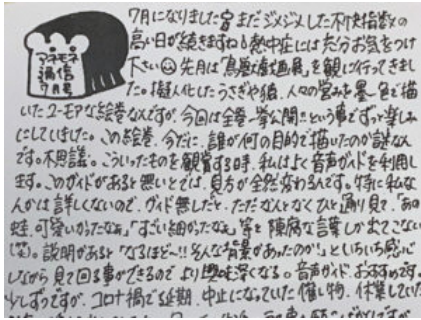 アネモネ
通信
7月号
7月になりました まだジメジメした不快指数の
高い日が続きますね 熱中症には充分お気をつけ
下さい 先月は「鳥獣戯画展」を観に行ってきまし
た。擬人化したうさぎや猿、人々の営みを墨一色で描
いたユーモアな絵巻なんですが、今回は全巻一挙公開!!という事でずっと楽しみ
にしていました。この絵巻、今だに、誰が何の目的で描いたのか謎なん
です。不思議。こういったものを観賞する時、私はよく音声ガイドを利用し
ます。このガイドがあると無いとでは、見方が全然変わるんです。特に私な
んかは詳しくないので、ガイド無しだと、ただなんとなくひと通り見て、「あの
蛙、可愛いかったなぁ」「すごい細かったなぁ」等と陳腐な言葉しか出てこない
(笑)。説明があると「なるほど〜!!そんな背景があったのか!」といちいち感心
しながら見て回る事ができるので より興味深くなる。音声ガイド、おすすめです。
少しずつですが、コロナ禍で延期、中止になっていた催し物、休業していた